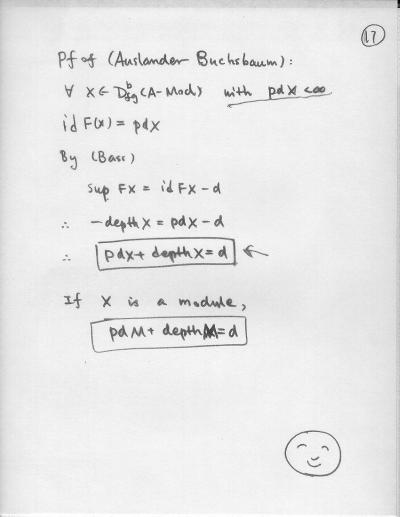 17
Pf of (Auslander Buchsbaum):
∀ X ∈ D^b_fg (A-Mod) with pd X < ∞
id F(X) = pd X
By (Bass)
sup FX = id FX - d
∴ -depth X = pd X - d
∴ pd X + depth X = d ←
If X is a module,
pd M + depth M = d